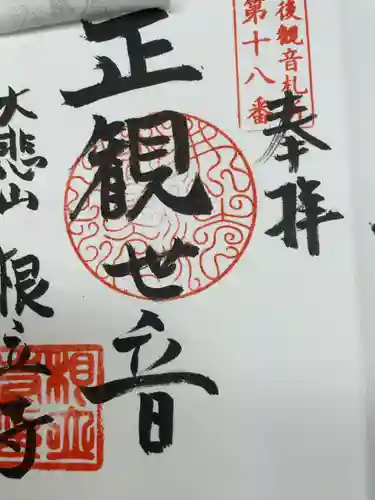 後観音札所
第十八番
奉拝
正観世音
大悲山
根立寺